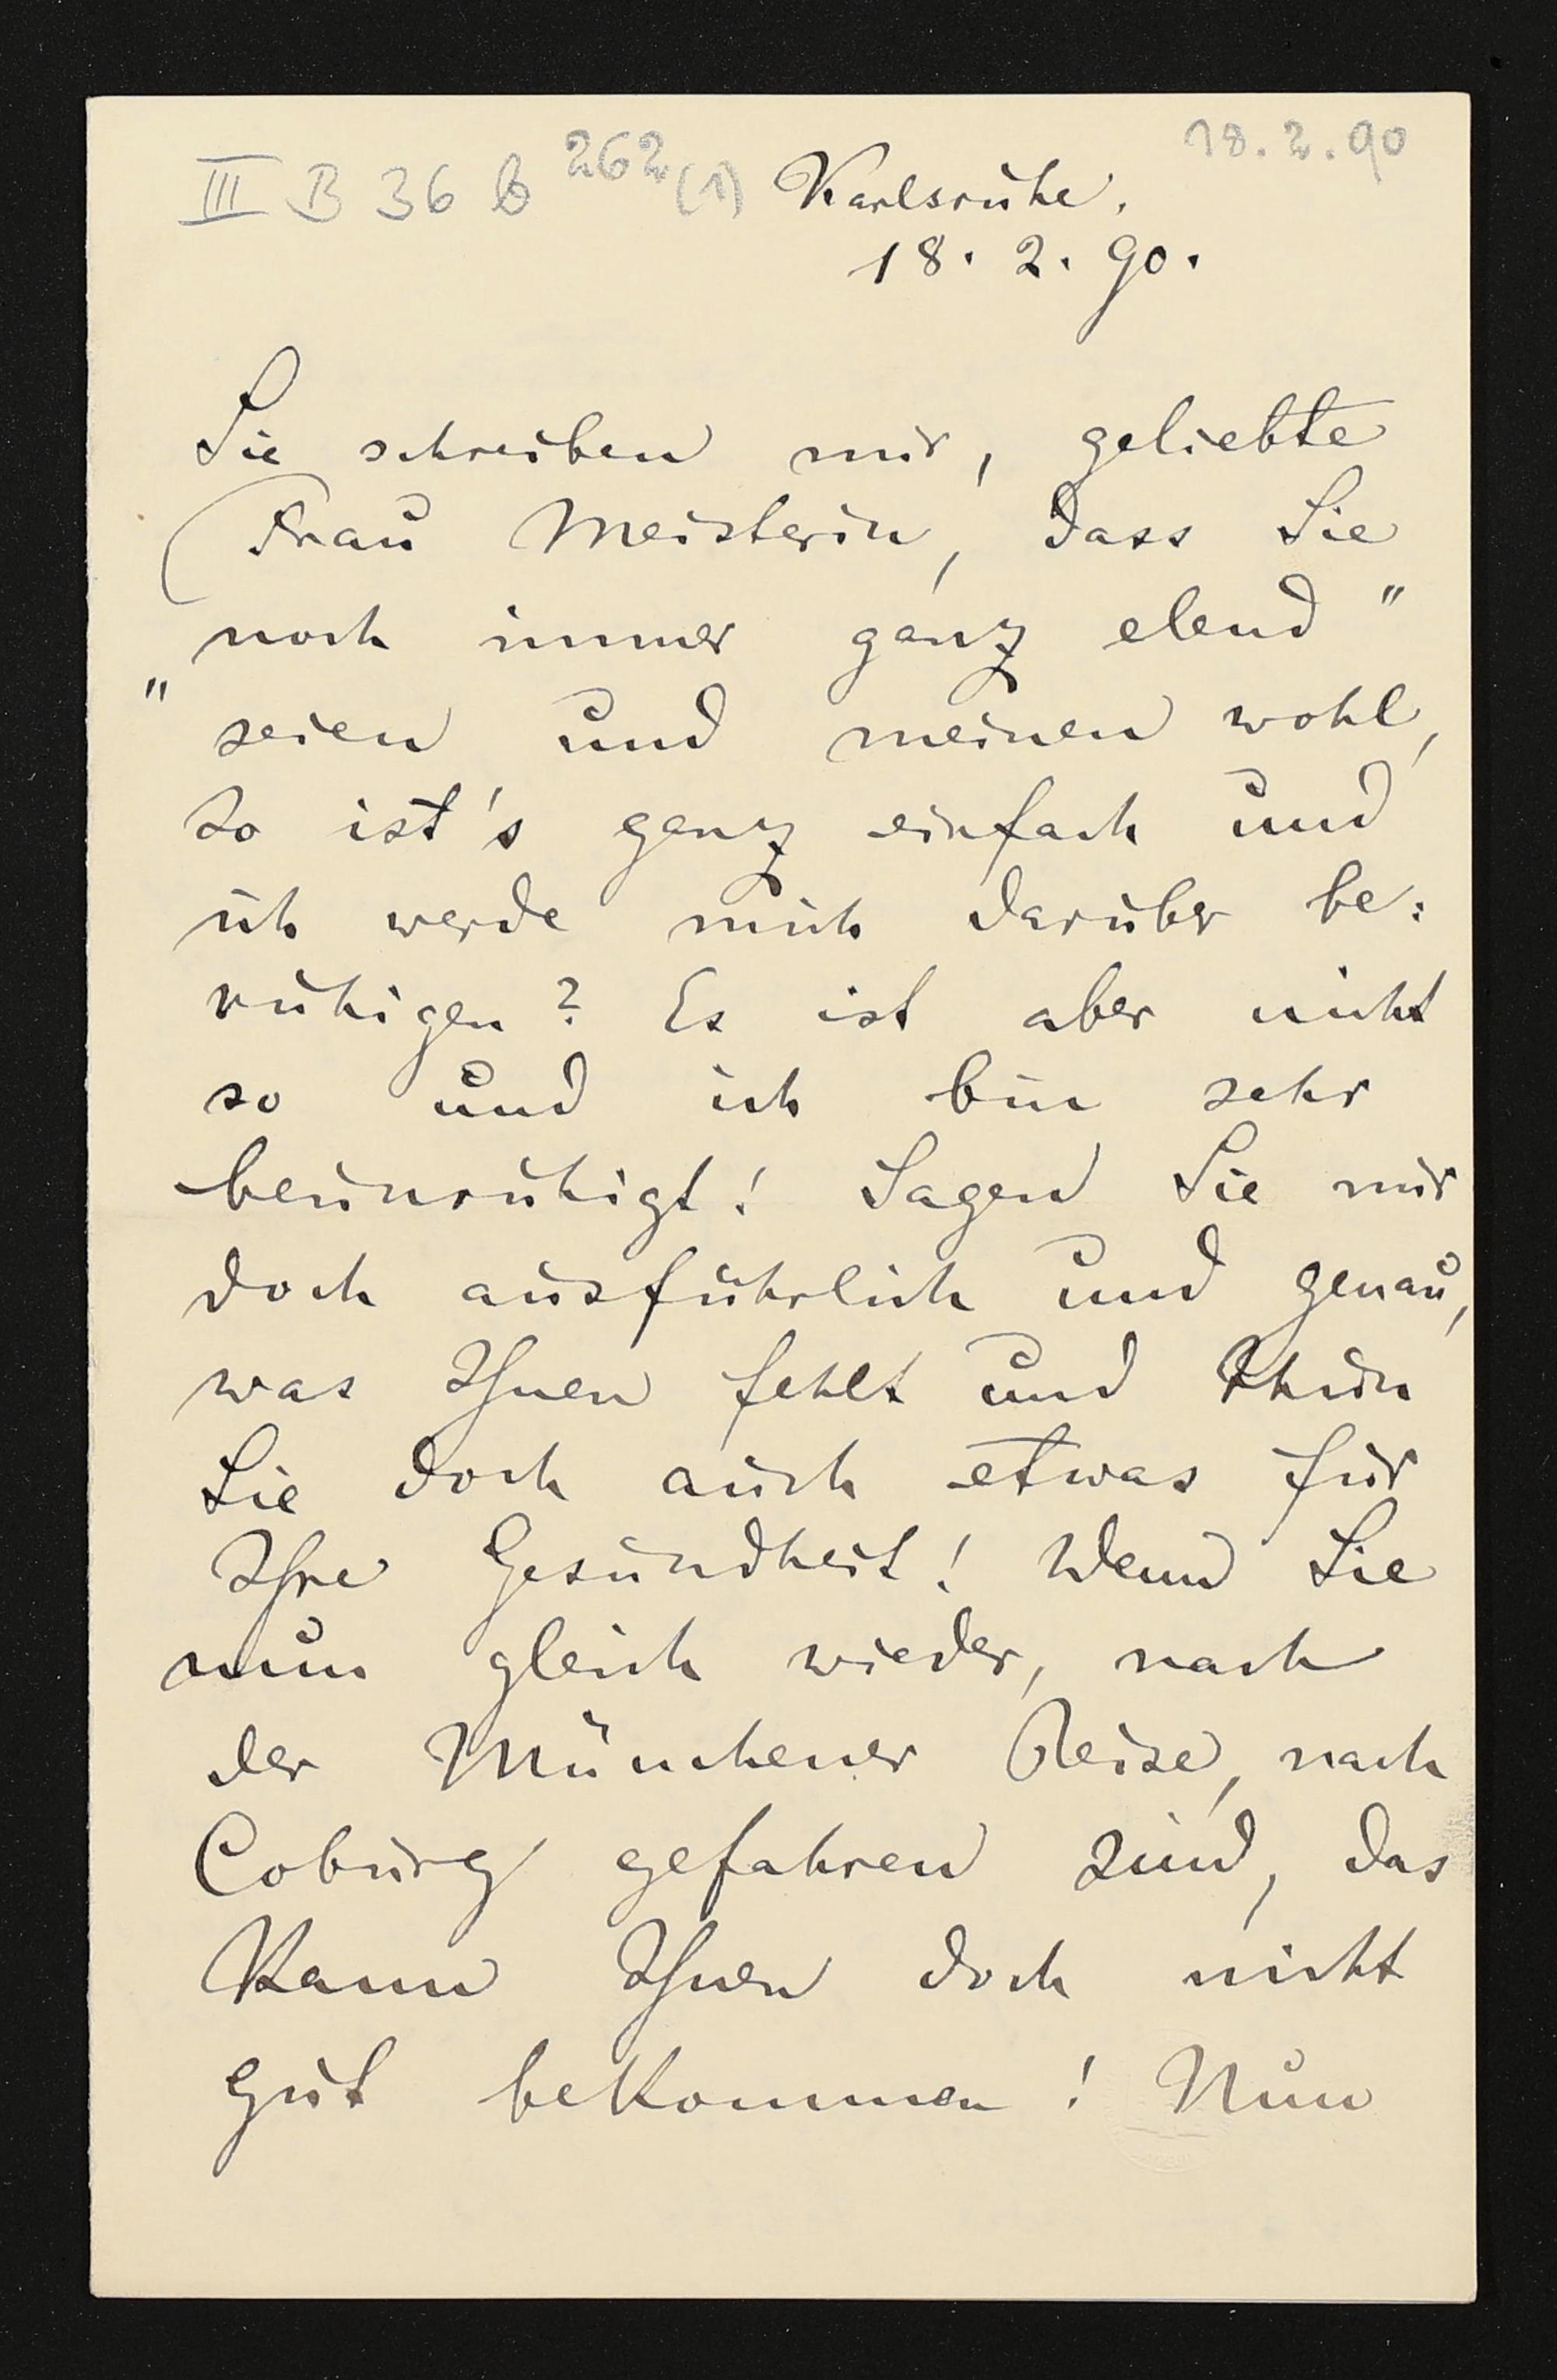 III B 36 b 262(1) Karlsruhe. 18.2.90
18. 2. 90.
Sie schreiben mir, geliebte
Frau Meisterin, dass Sie
noch immer ganz elend"
"seien und meinen wohl,
so ist's ganz einfach und
ich werde mich darüber be:
ruhigen? Es ist aber nicht
so und ich bin sehr
beunruhigt! Sagen Sie mir
doch ausführlich und genau,
was Ihnen fehlt und thun
Sie doch auch etwas für
Ihre Gesundheit! Wenn Sie
nun gleich wieder, nach
der Münchener Reise, nach
Coburg gefahren sind, das
kann Ihnen doch nicht
gut bekommen! Nun